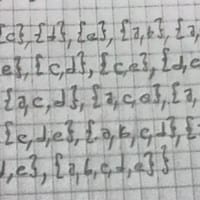 {c},{d},{e},{a,b},{a,
e},{c,d},{c,e},{d,e
{a,c,d},{a,c,e},{a,
{c,d,e},{a,b,c,d},{
d,e},{a,b,c,d,e}}